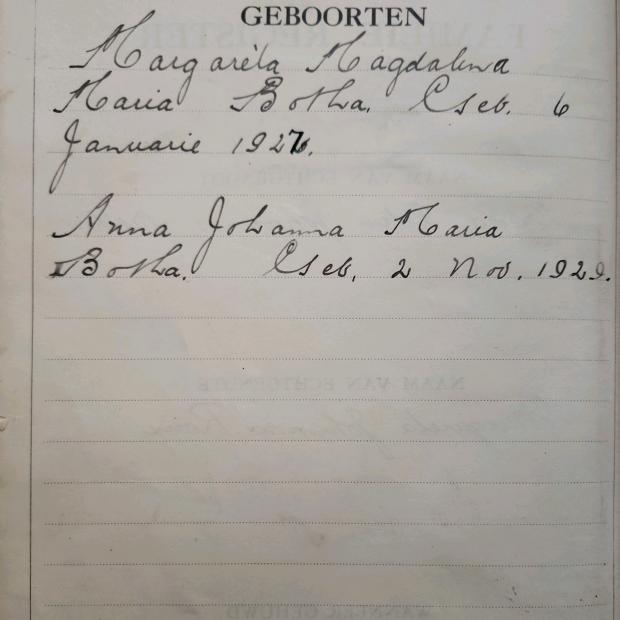 GEBOORTEN
Margarēta Magdalena
Maria Botha. Geb. 6
Januarie 1927.
Anna Johanna Maria
Botha. Geb. 2 Nov. 1929.